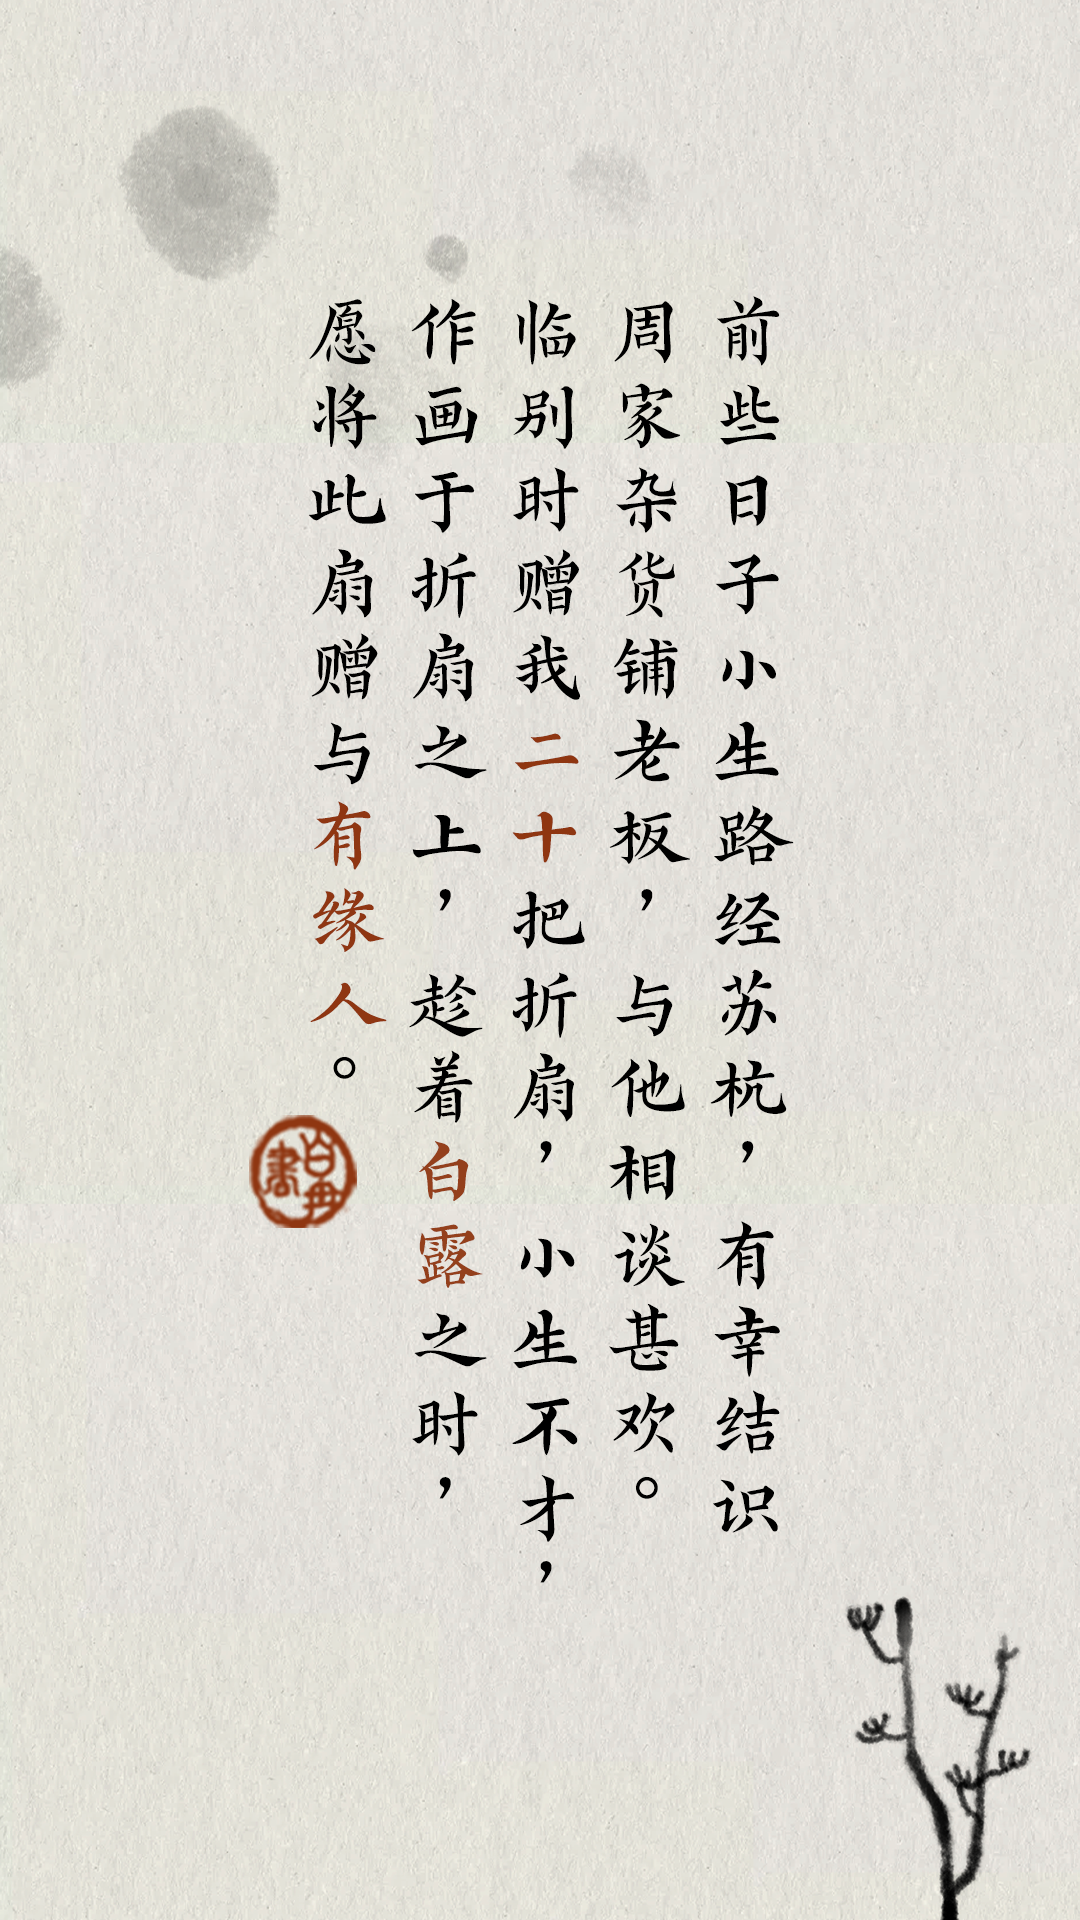 前些日子小生路经苏杭，有幸结识
周家杂货铺老板，与他相谈甚欢。
临别时赠我二十把折扇，小生不才，
作画于折扇之上，趁着白露之时，
愿将此扇赠与有缘人。